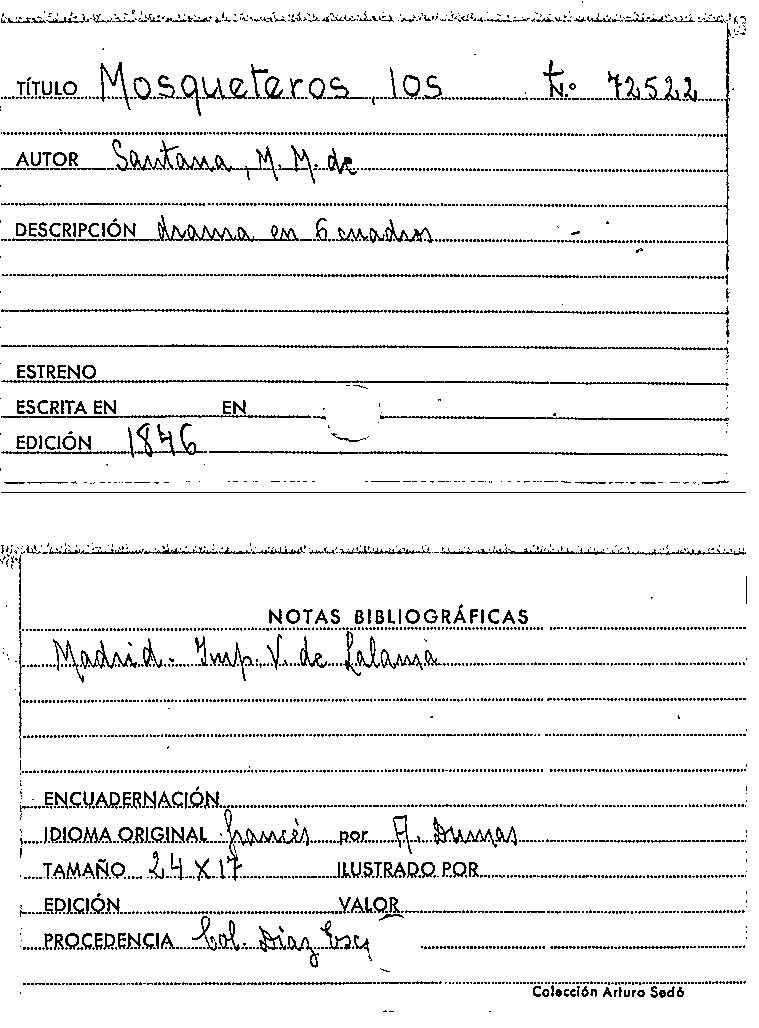 TÍTULO Mosqueteros, los t N.º 72522
AUTOR Santana, M. M. de
DESCRIPCIÓN drama en 6 cuadros
ESTRENO
ESCRITA EN EN
EDICIÓN 1846
NOTAS BIBLIOGRÁFICAS
Madrid - Imp. V. de Lalama
ENCUADERNACIÓN
IDIOMA ORIGINAL francés por A. Dumas
TAMAÑO 24 X 17 ILUSTRADO POR
EDICIÓN VALOR
PROCEDENCIA Col. Díaz Esc
Colección Arturo Sedó